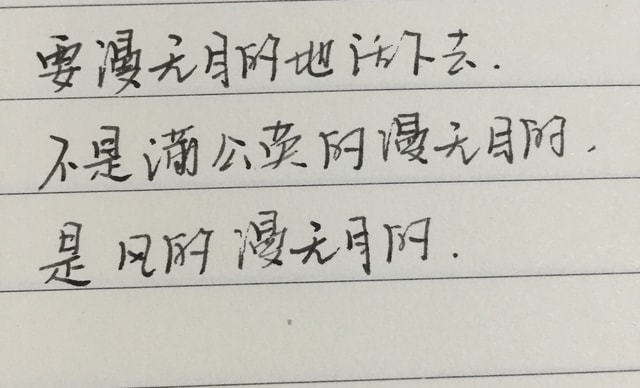 要漫无目的地活下去.
不是蒲公英的漫无目的.
是风的漫无目的.